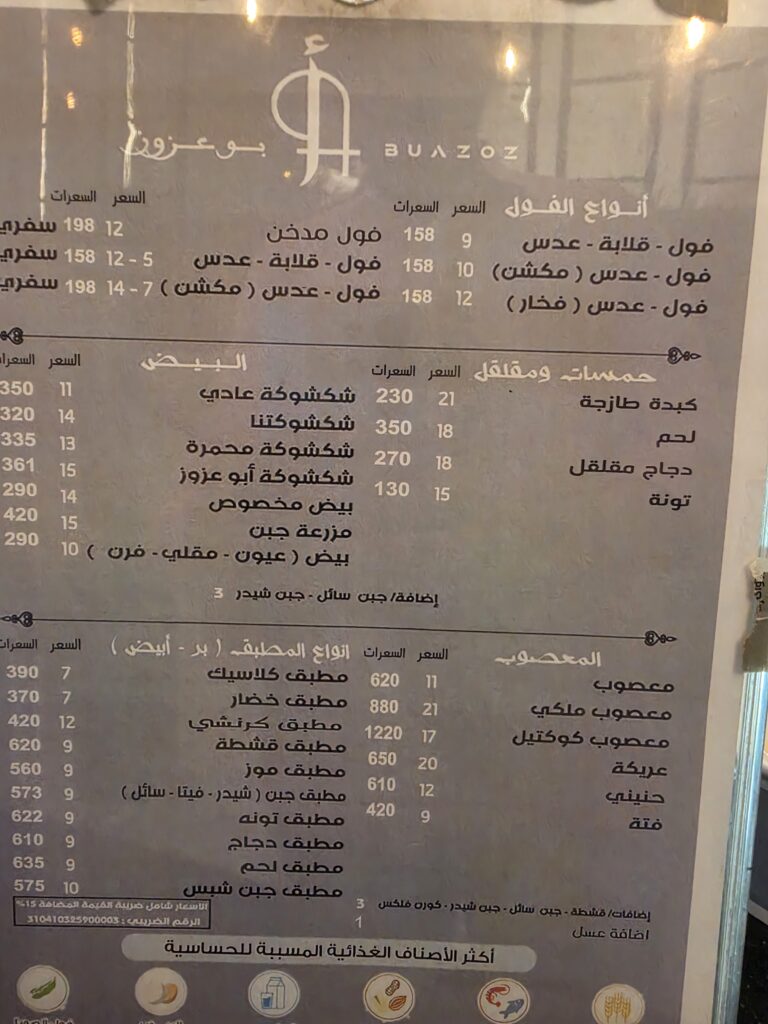 بو عزوز
BUAZOZ
أنواع الفول السعر السعرات
فول - قلابة - عدس 9 158
فول - عدس ( مكشن) 10 158
فول - عدس ( فخار ) 12 158
السعر السعرات
فول مدخن 12 198 سفري
فول - قلابة - عدس 5 - 12 158 سفري
فول - عدس ( مكشن ) 7 - 14 198 سفري
حمسات ومقلقل السعر السعرات
كبدة طازجة 21 230
لحم 18 350
دجاج مقلقل 18 270
تونة 15 130
البيض السعر السعرات
شكشوكة عادي 11 350
شكشوكتنا 14 320
شكشوكة محمرة 13 335
شكشوكة أبو عزوز 15 361
بيض مخصوص 14 290
مزرعة جبن 15 420
بيض ( عيون - مقلي - فرن ) 10 290
إضافة/ جبن سائل - جبن شيدر 3
المعصوب السعر السعرات
معصوب 11 620
معصوب ملكي 21 880
معصوب كوكتيل 17 1220
عريكة 20 650
حنيني 12 610
فتة 9 420
انواع المطبق ( بر - أبيض ) السعر السعرات
مطبق كلاسيك 7 390
مطبق خضار 7 370
مطبق كرنشي 12 420
مطبق قشطة 9 620
مطبق موز 9 560
مطبق جبن ( شيدر - فيتا - سائل ) 9 573
مطبق تونه 9 622
مطبق دجاج 9 610
مطبق لحم 9 635
مطبق جبن شبس 10 575
إضافات/ قشطة - جبن سائل - جبن شيدر - كورن فلكس 3
اضافة عسل 1
الاسعار شامل ضريبة القيمة المضافة 15%
الرقم الضريبي : 310410325900003
أكثر الأصناف الغذائية المسببة للحساسية
فول الصويا